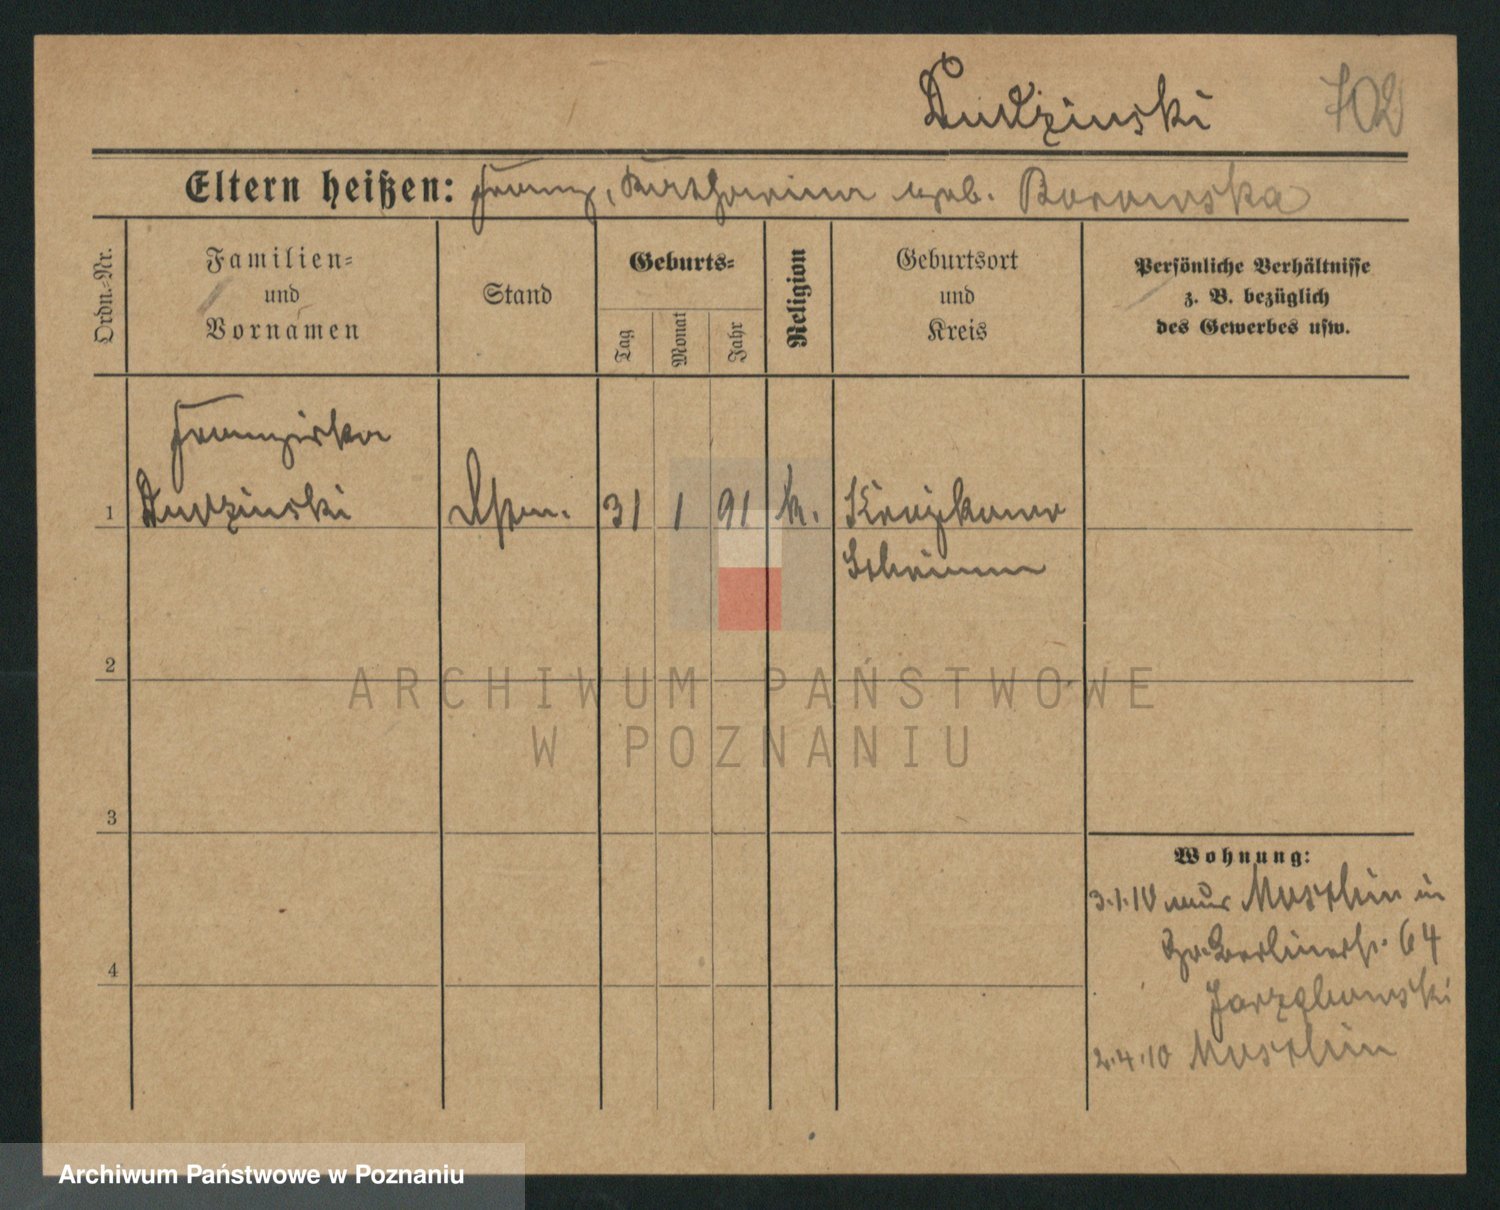 Dudzinski 702
Eltern heißen: Franz, Katharina geb. Borowska
Ordn.-Nr.
Familien-
und
Vornamen
Stand
Geburts-
Tag
Monat
Jahr
Religion
Geburtsort
und
Kreis
Persönliche Verhältnisse
z. B. bezüglich
des Gewerbes usw.
Franziska
1 Dudzinski 31 1 91 k.
Schrimm
2
3
4
Wohnung:
3.1.10 aus Moschin in
Berlinerstr. 64
2.4.10 Moschin
ARCHIWUM PAŃSTWOWE
W POZNANIU
Archiwum Państwowe w Poznaniu